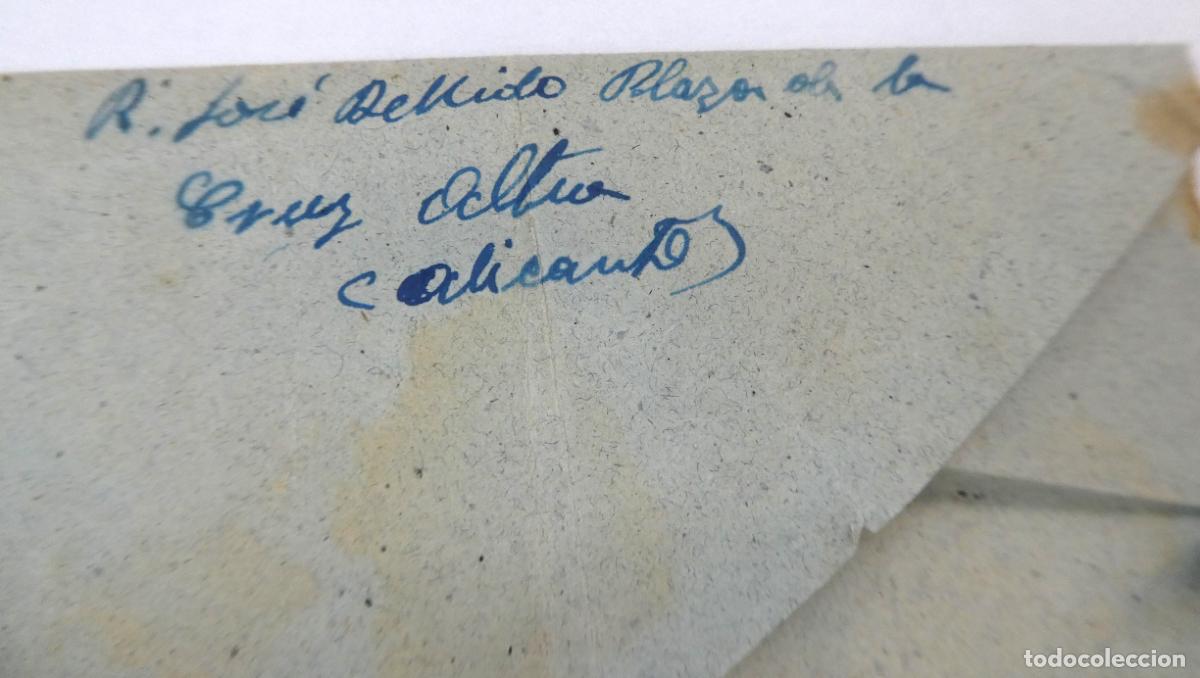 R. José Plaza de la
Cruz Altea
(Alicante)
todocoleccion